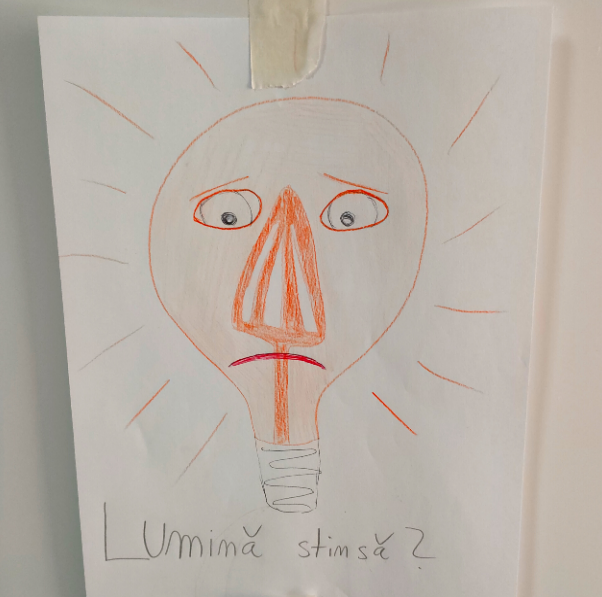 Lumină stinsă?